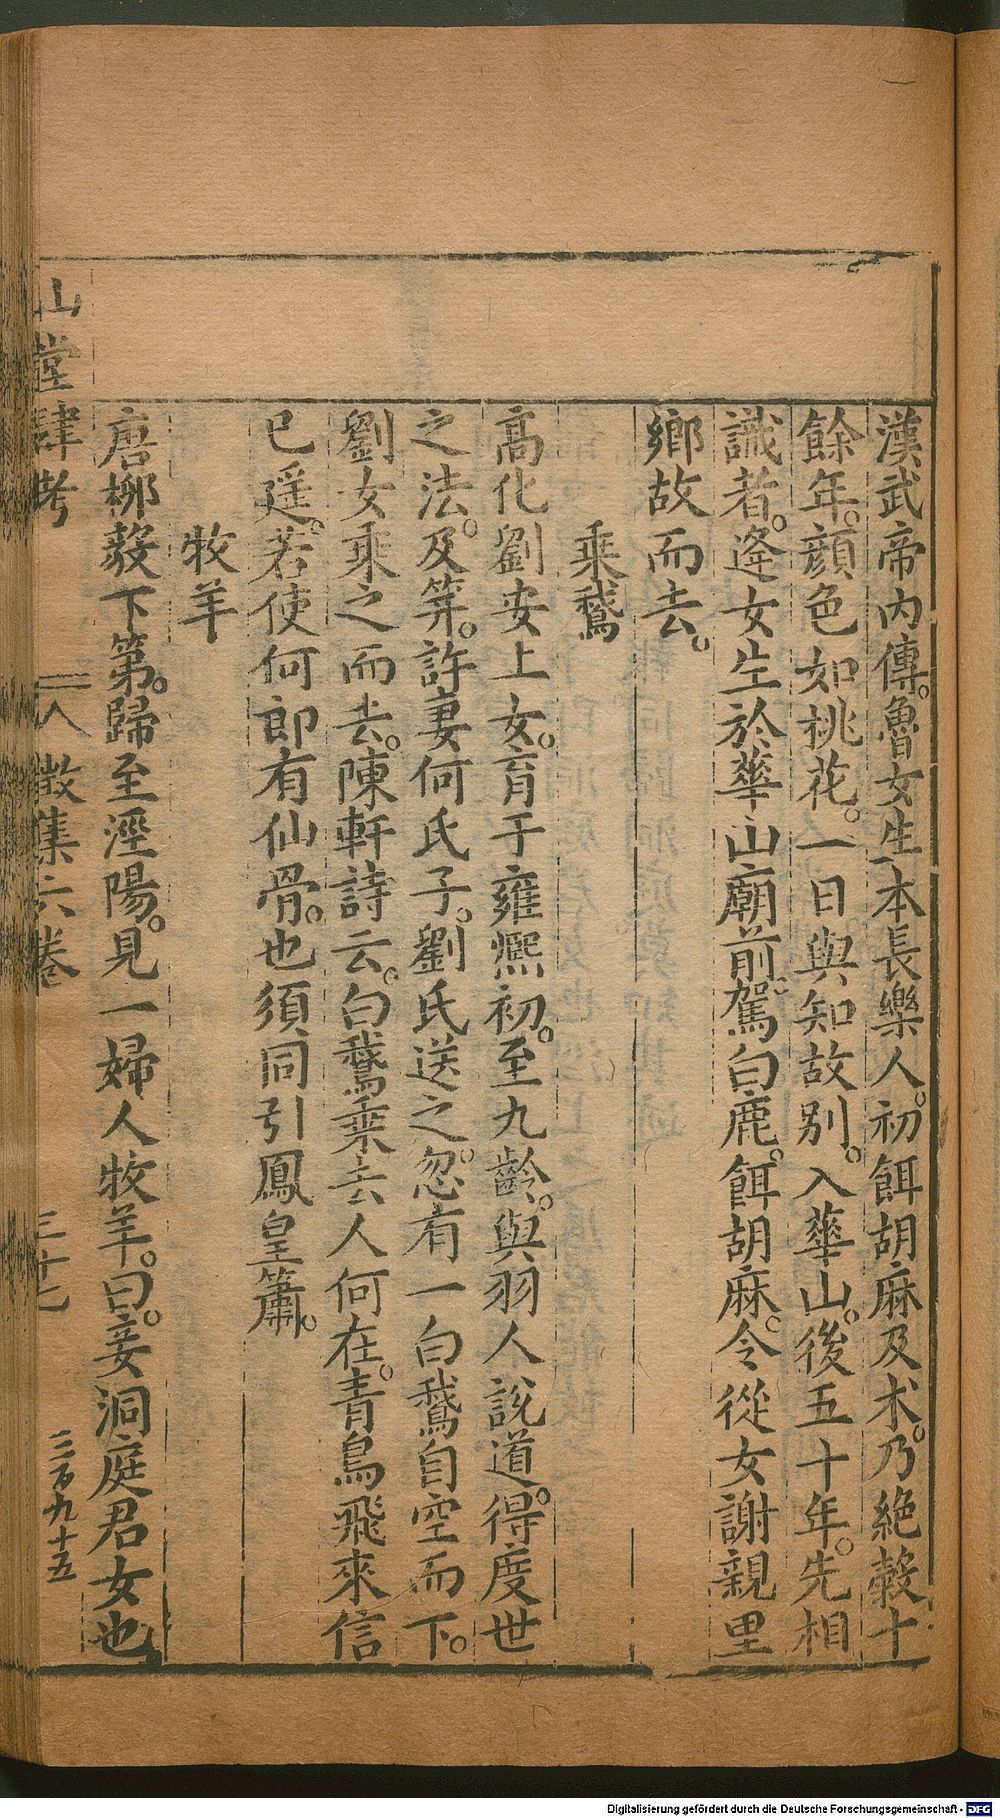 漢武帝內傳。魯女生本長樂人。初餌胡麻及朮。乃絕穀十
餘年。顔色如桃花。一日與知故别。入華山。後五十年。先相
識者。逢女生於華山廟前駕白鹿。餌胡麻。令從女謝親里
鄉故而去。
乘鵞
高化劉安上女。育于雍熈初。至九齡。與羽人說道。得度世
之法。及筭。許妻何氏子。劉氏送之。忽有一白鵞自空而下。
劉女乘之而去。陳軒詩云。白鵞乘去人何在。青鳥飛來信
已遥。若使何郎有仙骨。也須同引鳳皇簫。
牧羊
唐柳毅下第。歸至涇陽。見一婦人牧羊。曰。妾洞庭君女也
山堂肆考 徵集六卷 三十七 二百九十五
Digitalisierung gefördert durch die Deutsche Forschungsgemeinschaft - DFG